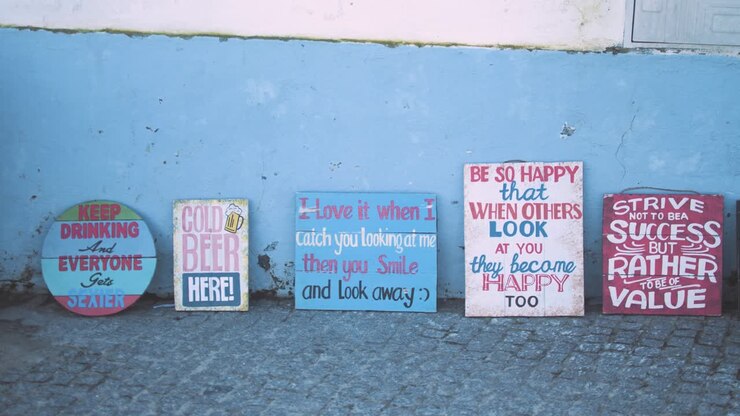 KEEP
DRINKING
And
EVERYONE
Gets
SEXIER
COLD
BEER
HERE!
I Love it when I
catch you looking at me
then you Smile
and look away :)
BE SO HAPPY
that
WHEN OTHERS
LOOK
AT YOU
they become
HAPPY
TOO
STRIVE
NOT TO BE A
SUCCESS
BUT
RATHER
TO BE OF
VALUE